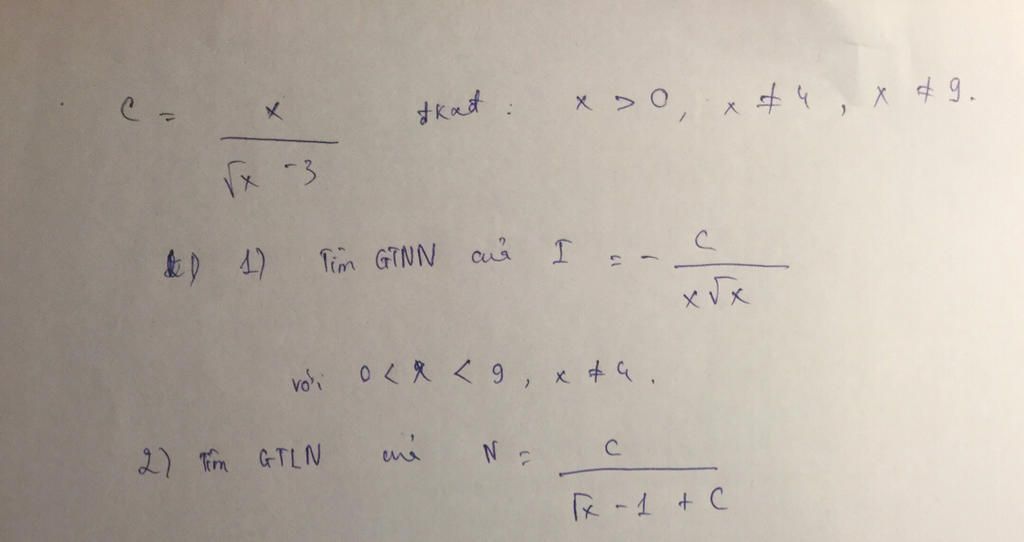 C = x / (√x - 3) đkxđ : x > 0, x ≠ 4, x ≠ 9.
1) Tìm GTNN của I = - C / (x√x)
với 0 < x < 9, x ≠ 4.
2) Tìm GTLN của N = C / (√x - 1 + C)